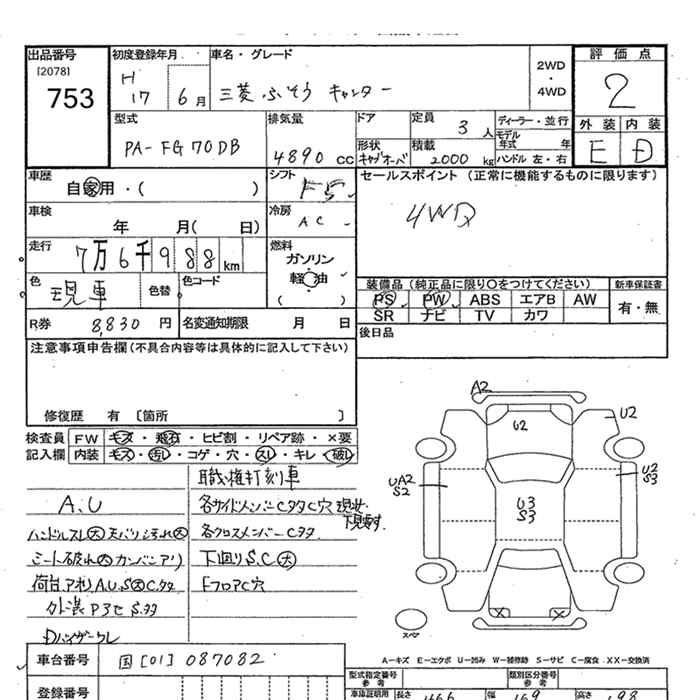 出品番号
[2078]
753
初度登録年月
H
17 6月
車名・グレード
三菱 ふそう キャンター
2WD
・
4WD
評価点
2
外装 内装
E D
型式
PA-FG70DB
排気量
4890 CC
ドア
定員
3人
ディーラー・並行
形状
キャブオーバ
積載
2000 kg
モデル
年式 年
ハンドル 左・右
車歴
自家用・( )
シフト
F5
セールスポイント (正常に機能するものに限ります)
4WD
車検
年 月( 日)
冷房
AC
走行
7万6千988km
燃料
ガソリン
軽油
( )
色
現車
色替
色コード
装備品 (純正品に限り○をつけてください)
新車保証書
PS PW ABS エアB AW
SR ナビ TV カワ
有・無
R券 8,830円
名変通知期限 月 日
後日品
注意事項申告欄(不具合内容等は具体的に記入して下さい)
修復歴 有 〔箇所 〕
検査員
記入欄
FW キズ・飛石・ヒビ割・リペア跡・×要
内装 キズ・汚レ・コゲ・穴・スレ・キレ・破レ
職権打刻車
A.U
各サイドメンバーCタタC穴 現状
下見要す
ハンドルスレ大 天バリ汚れ大
各クロスメンバーCタタ
シート破れ大 カンバンアリ
下回りS.C大
荷台アオリA.U.S大Cタタ
FフロアC穴
外装 Pヌセ S.タタ
Dバイザーワレ
A2
U2
U2
UA2
S2
U3
S3
U2
S3
スペア
車台番号 国[01]087082
A—キズ E—エクボ U—凹み W—補修跡 S—サビ C—腐食 XX—交換済
登録番号
型式指定番号
参考
類別区分番号
参考
車庫証明用
長さ 466
幅 169
高さ 198